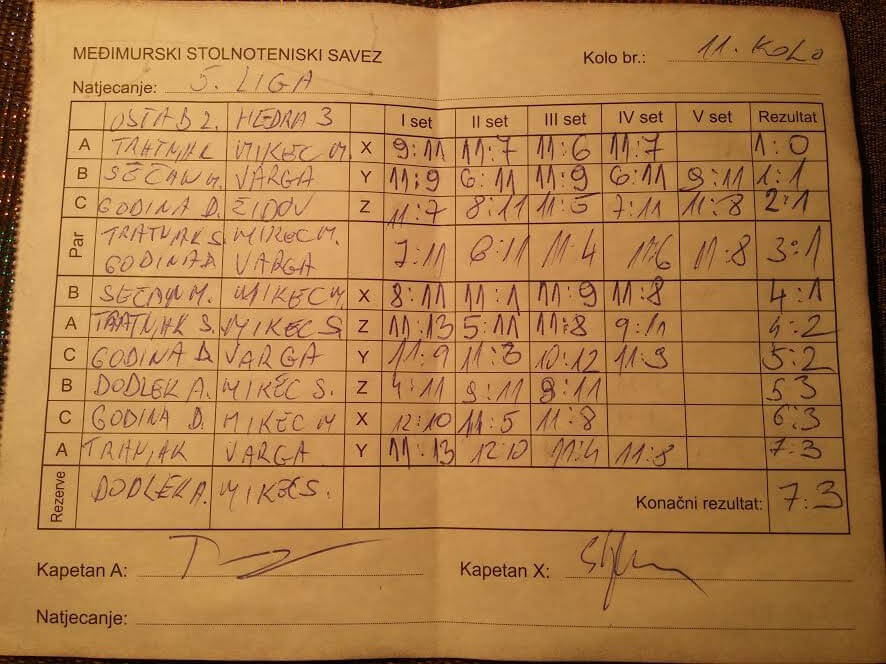 MEĐIMURSKI STOLNOTENISKI SAVEZ
Kolo br.: 11. KOLO
Natjecanje: 5. LIGA
OSTAB 2. HEDRA 3 I set II set III set IV set V set Rezultat
A TRATNJAK MIKEC M. X 9:11 11:7 11:6 11:7 1:0
B SEČAN M. VARGA Y 11:9 6:11 11:9 6:11 9:11 1:1
C GODINA D. ŽIDOV Z 11:7 8:11 11:5 7:11 11:8 2:1
Par TRATNJAK S. MIKEC M.
GODINA D. VARGA 7:11 6:11 11:4 11:6 11:8 3:1
B SEČAN M. MIKEC M. X 8:11 11:1 11:9 11:8 4:1
A TRATNJAK S. MIKEC S. Z 11:13 5:11 11:8 9:11 4:2
C GODINA D. VARGA Y 11:9 11:3 10:12 11:9 5:2
B DODLEK A. MIKEC S. Z 4:11 9:11 9:11 5 3
C GODINA D. MIKEC M X 12:10 11:5 11:8 6:3
A VARGA Y 11:13 12:10 11:4 11:8 7:3
Rezerve DODLEK A. MIKEC S. Konačni rezultat: 7:3
Kapetan A: Kapetan X:
Natjecanje: